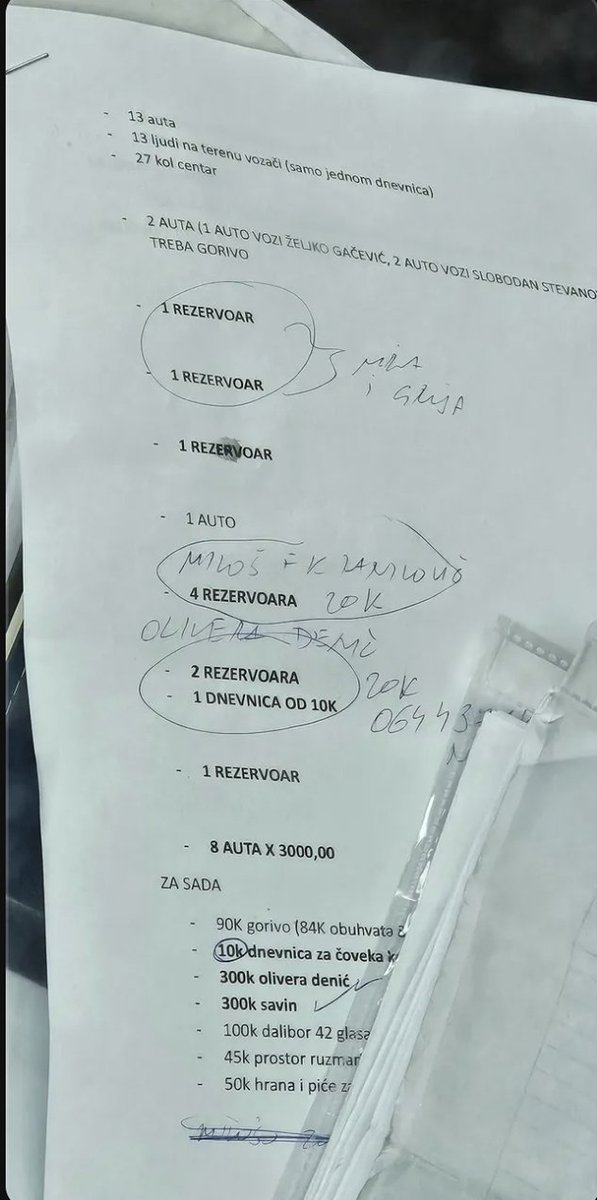 - 13 auta
- 13 ljudi na terenu vozači (samo jednom dnevnica)
- 27 kol centar
- 2 AUTA (1 AUTO VOZI ŽELJKO GAČEVIĆ, 2 AUTO VOZI SLOBODAN STEVANO
TREBA GORIVO
- 1 REZERVOAR
- 1 REZERVOAR
i
- 1 REZERVOAR
- 1 AUTO
MILOŠ
- 4 REZERVOARA 20K
OLIVERA
- 2 REZERVOARA
- 1 DNEVNICA OD 10K 20K
- 1 REZERVOAR
- 8 AUTA X 3000,00
ZA SADA
- 90K gorivo (84K obuhvata
- 10k dnevnica za čoveka
- 300k olivera denić
- 300k savin
- 100k dalibor 42 glasa
- 45k prostor ruzmar
- 50k hrana i piće za